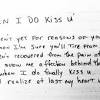 WHEN I DO KISS U
n't yet for reasons of yo
hen I'm sure you'll tire from
n't recovered from the pain of
show me affection behind th
when I do finally kiss u
l realize at last my heart